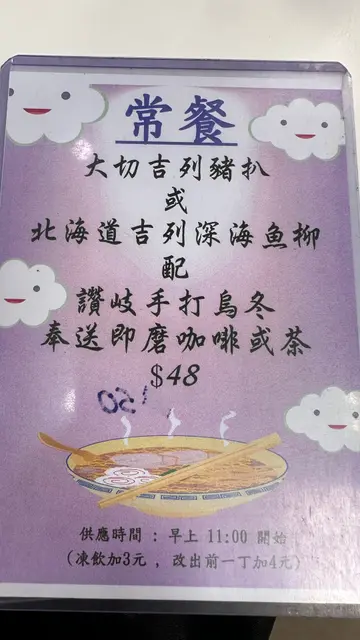 常餐
大切吉列豬扒
或
北海道吉列深海魚柳
配
讃岐手打烏冬
奉送即磨咖啡或茶
$48
供應時間：早上 11:00 開始
（凍飲加3元，改出前一丁加4元）